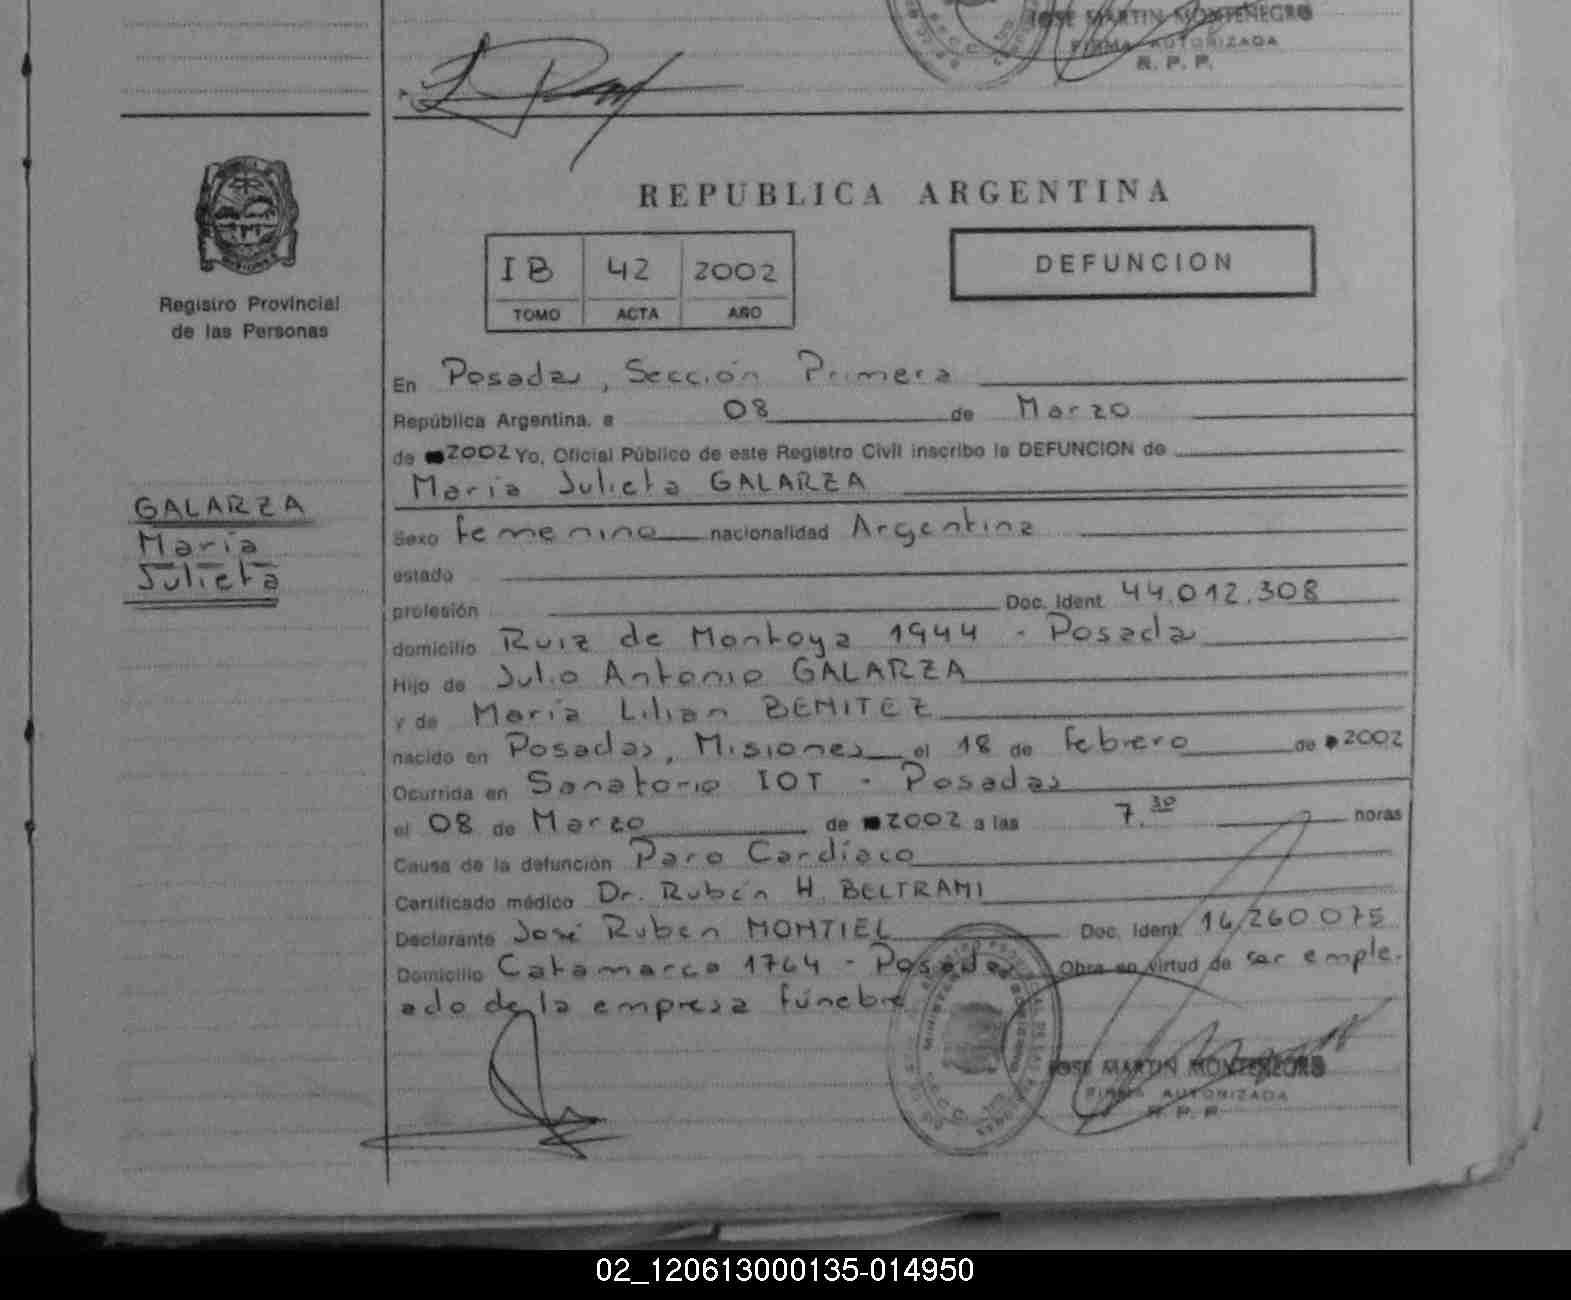 JOSE MARTIN MONTENEGRO
FIRMA AUTORIZADA
R. P. P.
REPUBLICA ARGENTINA
Registro Provincial
de las Personas
IB 42 2002
TOMO ACTA AÑO
DEFUNCION
En Posadas, Sección Primera
República Argentina, a 08 de Marzo
de 2002 Yo, Oficial Público de este Registro Civil inscribo la DEFUNCION de
María Julieta GALARZA
GALARZA
María
Julieta
Sexo femenino nacionalidad Argentina
estado
profesión Doc. Ident. 44.012.308
domicilio Ruiz de Montoya 1944 - Posadas
Hijo de Julio Antonio GALARZA
y de María Lilian BENITEZ
nacido en Posadas, Misiones el 18 de febrero de 2002
Ocurrida en Sanatorio IOT - Posadas
el 08 de Marzo de 2002 a las 7.30 horas
Causa de la defunción Paro Cardíaco
Certificado médico Dr. Rubén H. BELTRAMI
Declarante José Ruben MONTIEL Doc. Ident. 16.260.075
Domicilio Catamarca 1764 - Posadas Obra en virtud de ser emple-
ado de la empresa fúnebre
JOSE MARTIN MONTENEGRO
FIRMA AUTORIZADA
R. P. P.
02_120613000135-014950